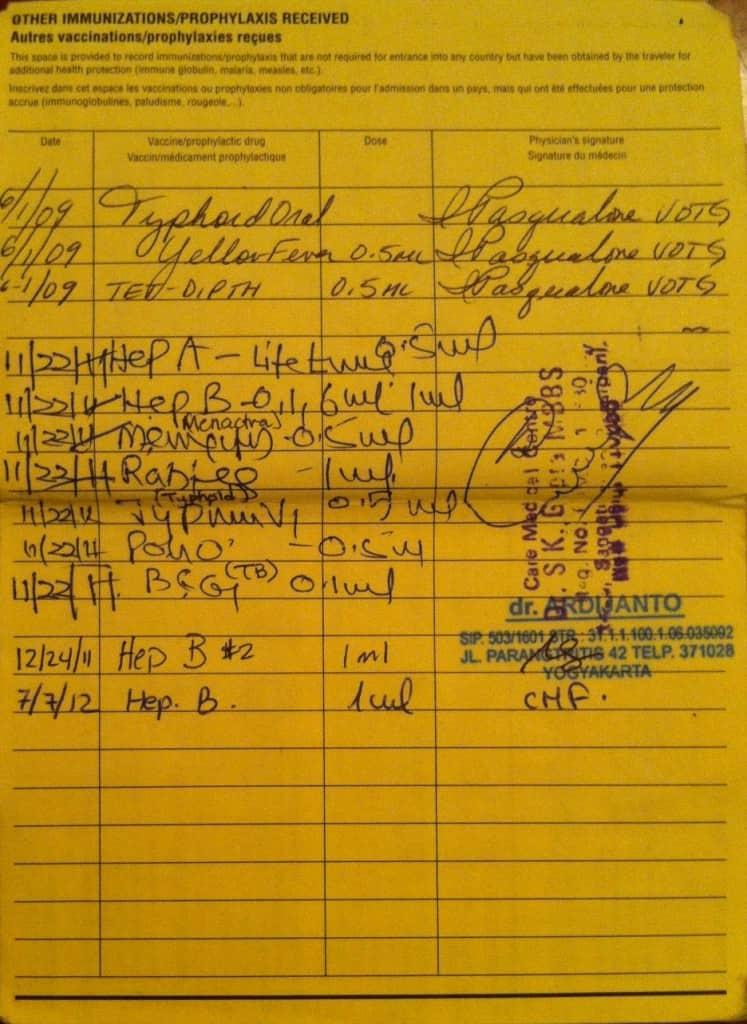 OTHER IMMUNIZATIONS/PROPHYLAXIS RECEIVED
Autres vaccinations/prophylaxies reçues
This space is provided to record immunizations/prophylaxis that are not required for entrance into any country but have been obtained by the traveler for
additional health protection (immune globulin, malaria, measles, etc.).
Inscrivez dans cet espace les vaccinations ou prophylaxies non obligatoires pour l'admission dans un pays, mais qui ont été effectuées pour une protection
accrue (immunoglobulines, paludisme, rougeole,...).
Date Vaccine/prophylactic drug Dose Physician's signature
Vaccin/médicament prophylactique Signature du médecin
6/1/09 Typhoid Oral Pasqualone VOTS
6/1/09 Yellow Fever 0.5ml Pasqualone VOTS
6-1/09 TET-DIPTH 0.5ml Pasqualone VOTS
11/22/11 Hep A - Lifetime 0.5ml
11/22/11 Hep B - 0,1,6 1ml
(Menactra)
11/22/11 - 0.5ml
11/22/11 Rabies - 1ml
(Typhoid)
11/22/11 0.5ml
11/22/11 Polio - 0.5ml
11/22/11 BCG (TB) 0.1ml
Care Medical Centre
Dr. SK. MBBS
dr. ARDIJANTO
SIP. 503/1601 STR : 31.1.1.100.1.06.035092
JL. PARANGTRITIS 42 TELP. 371028
YOGYAKARTA
12/24/11 Hep B #2 1 ml
7/7/12 Hep. B. 1ml CMF.